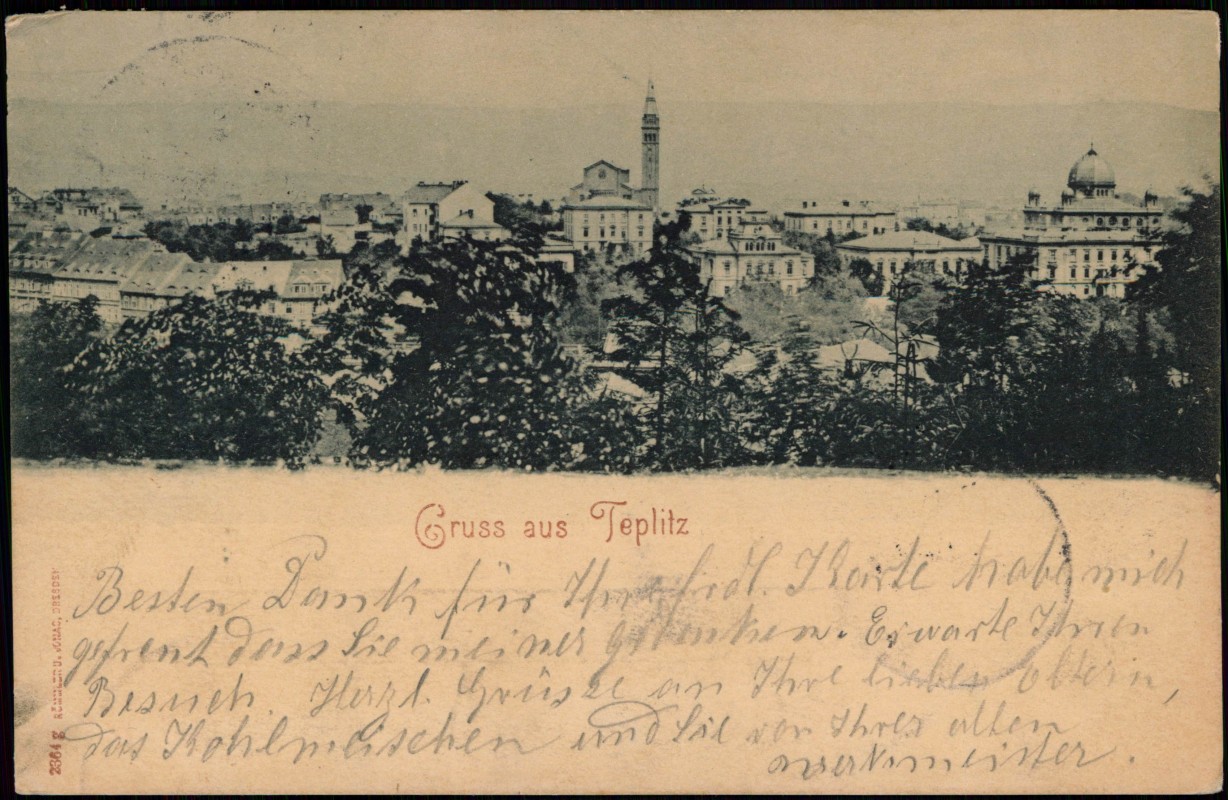 Gruss aus Teplitz
Besten Dank für Ihre frdl. Karte habe mich
gefreut dass Sie meiner gedenken. Erwarte Ihren
Besuch. Herzl. Grüsse an Ihre lieben Eltern,
das Kohlmeischen und Sie von Ihrer alten
2364 g RÖMMLER & JONAS, DRESDEN